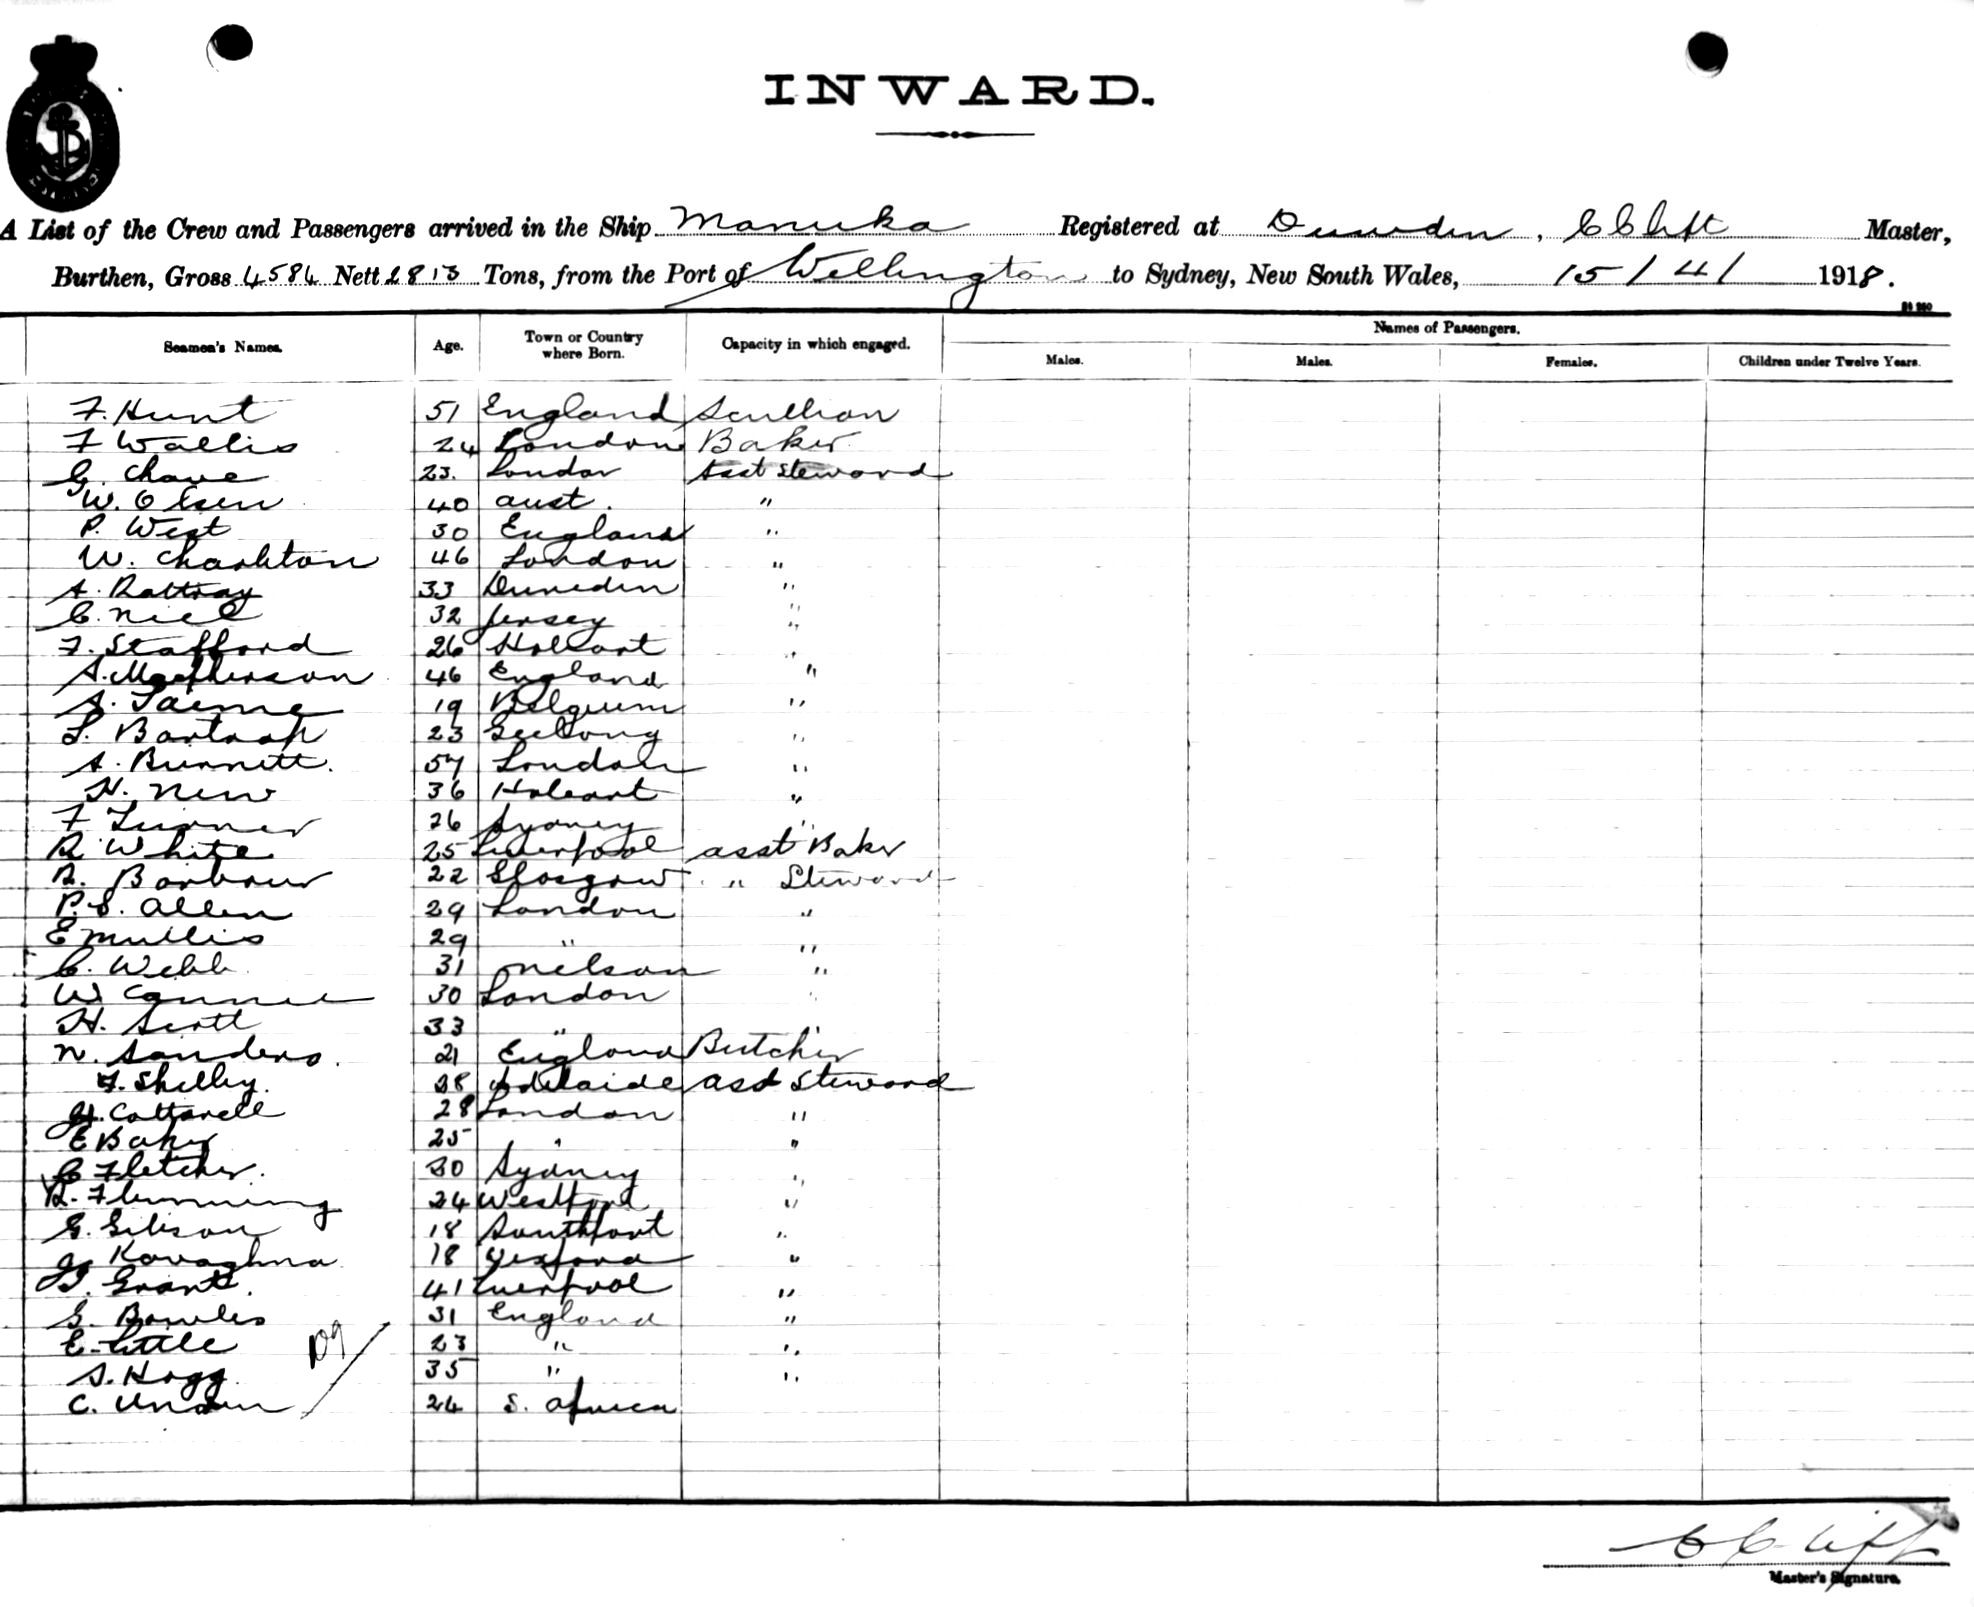 INWARD.
A List of the Crew and Passengers arrived in the Ship Manuka Registered at Dunedin, C Clift Master,
Burthen, Gross 4584 Nett 2813 Tons, from the Port of Wellington to Sydney, New South Wales, 15/4/ 1918.
Names of Passengers.
Seamen's Names. Age. Town or Country where Born. Capacity in which engaged. Males. Males. Females. Children under Twelve Years.
F. Hunt 51 England Scullion
F Wallis 24 London Baker
C. Chave 23. London Asst Steward
W. Olsen 40 aust. "
P. West 30 England "
W. Charlton 46 London "
A. Rattray 33 Dunedin "
C. Niel 32 Jersey "
F. Stafford 26 Hobart "
A. Macpherson 46 England "
A. 19 Belgium "
L. Bartrop 23 Geelong "
A. Burnett. 57 London "
H. New 36 Hobart "
F Turner 26 Sydney "
R White 25 Liverpool asst Baker
R. Barbour 22 Glasgow " Steward
P.S. Allen 29 London "
E Mullis 29 " "
C. Webb 31 Nelson "
W 30 London "
H. Scott 33 " "
N. Sanders. 21 England Butcher
F. Shelley. 38 Adelaide asst Steward
H. Cottarell 28 London "
E Baker 25 " "
C Fletcher. 30 Sydney "
R. Flemming 24 "
G. Gibson 18 Southport "
J. Kavaghna 18 "
J. Grant. 41 Liverpool "
G. Bowles 31 England "
E. Little 23 " "
S. Hogg 35 " "
C. 24 S. Africa
109
C Clift
Master's Signature.